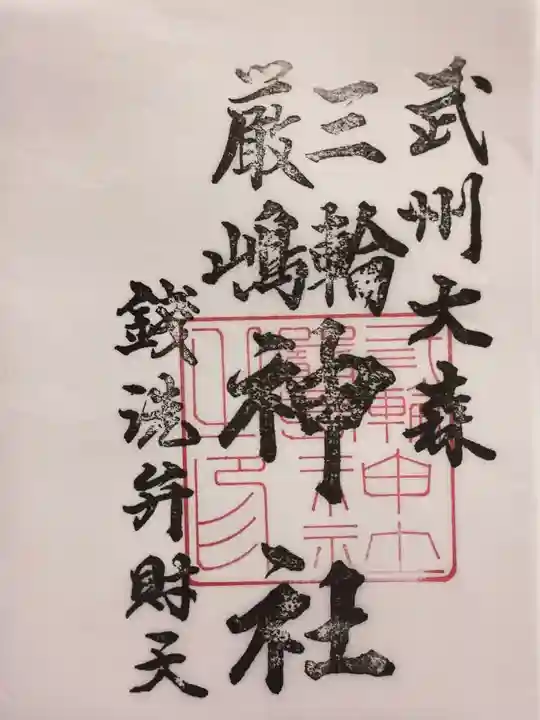 武州大森
三輪
厳嶋
神社
銭洗弁財天
三輪神社
厳嶋神社
之印